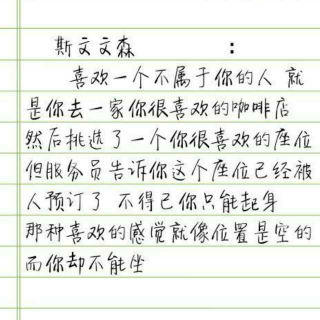 斯文文森 :
喜欢一个不属于你的人 就
是你去一家你很喜欢的咖啡店
然后挑选了一个你很喜欢的座位
但服务员告诉你这个座位已经被
人预订了 不得已你只能起身
那种喜欢的感觉就像位置是空的
而你却不能坐